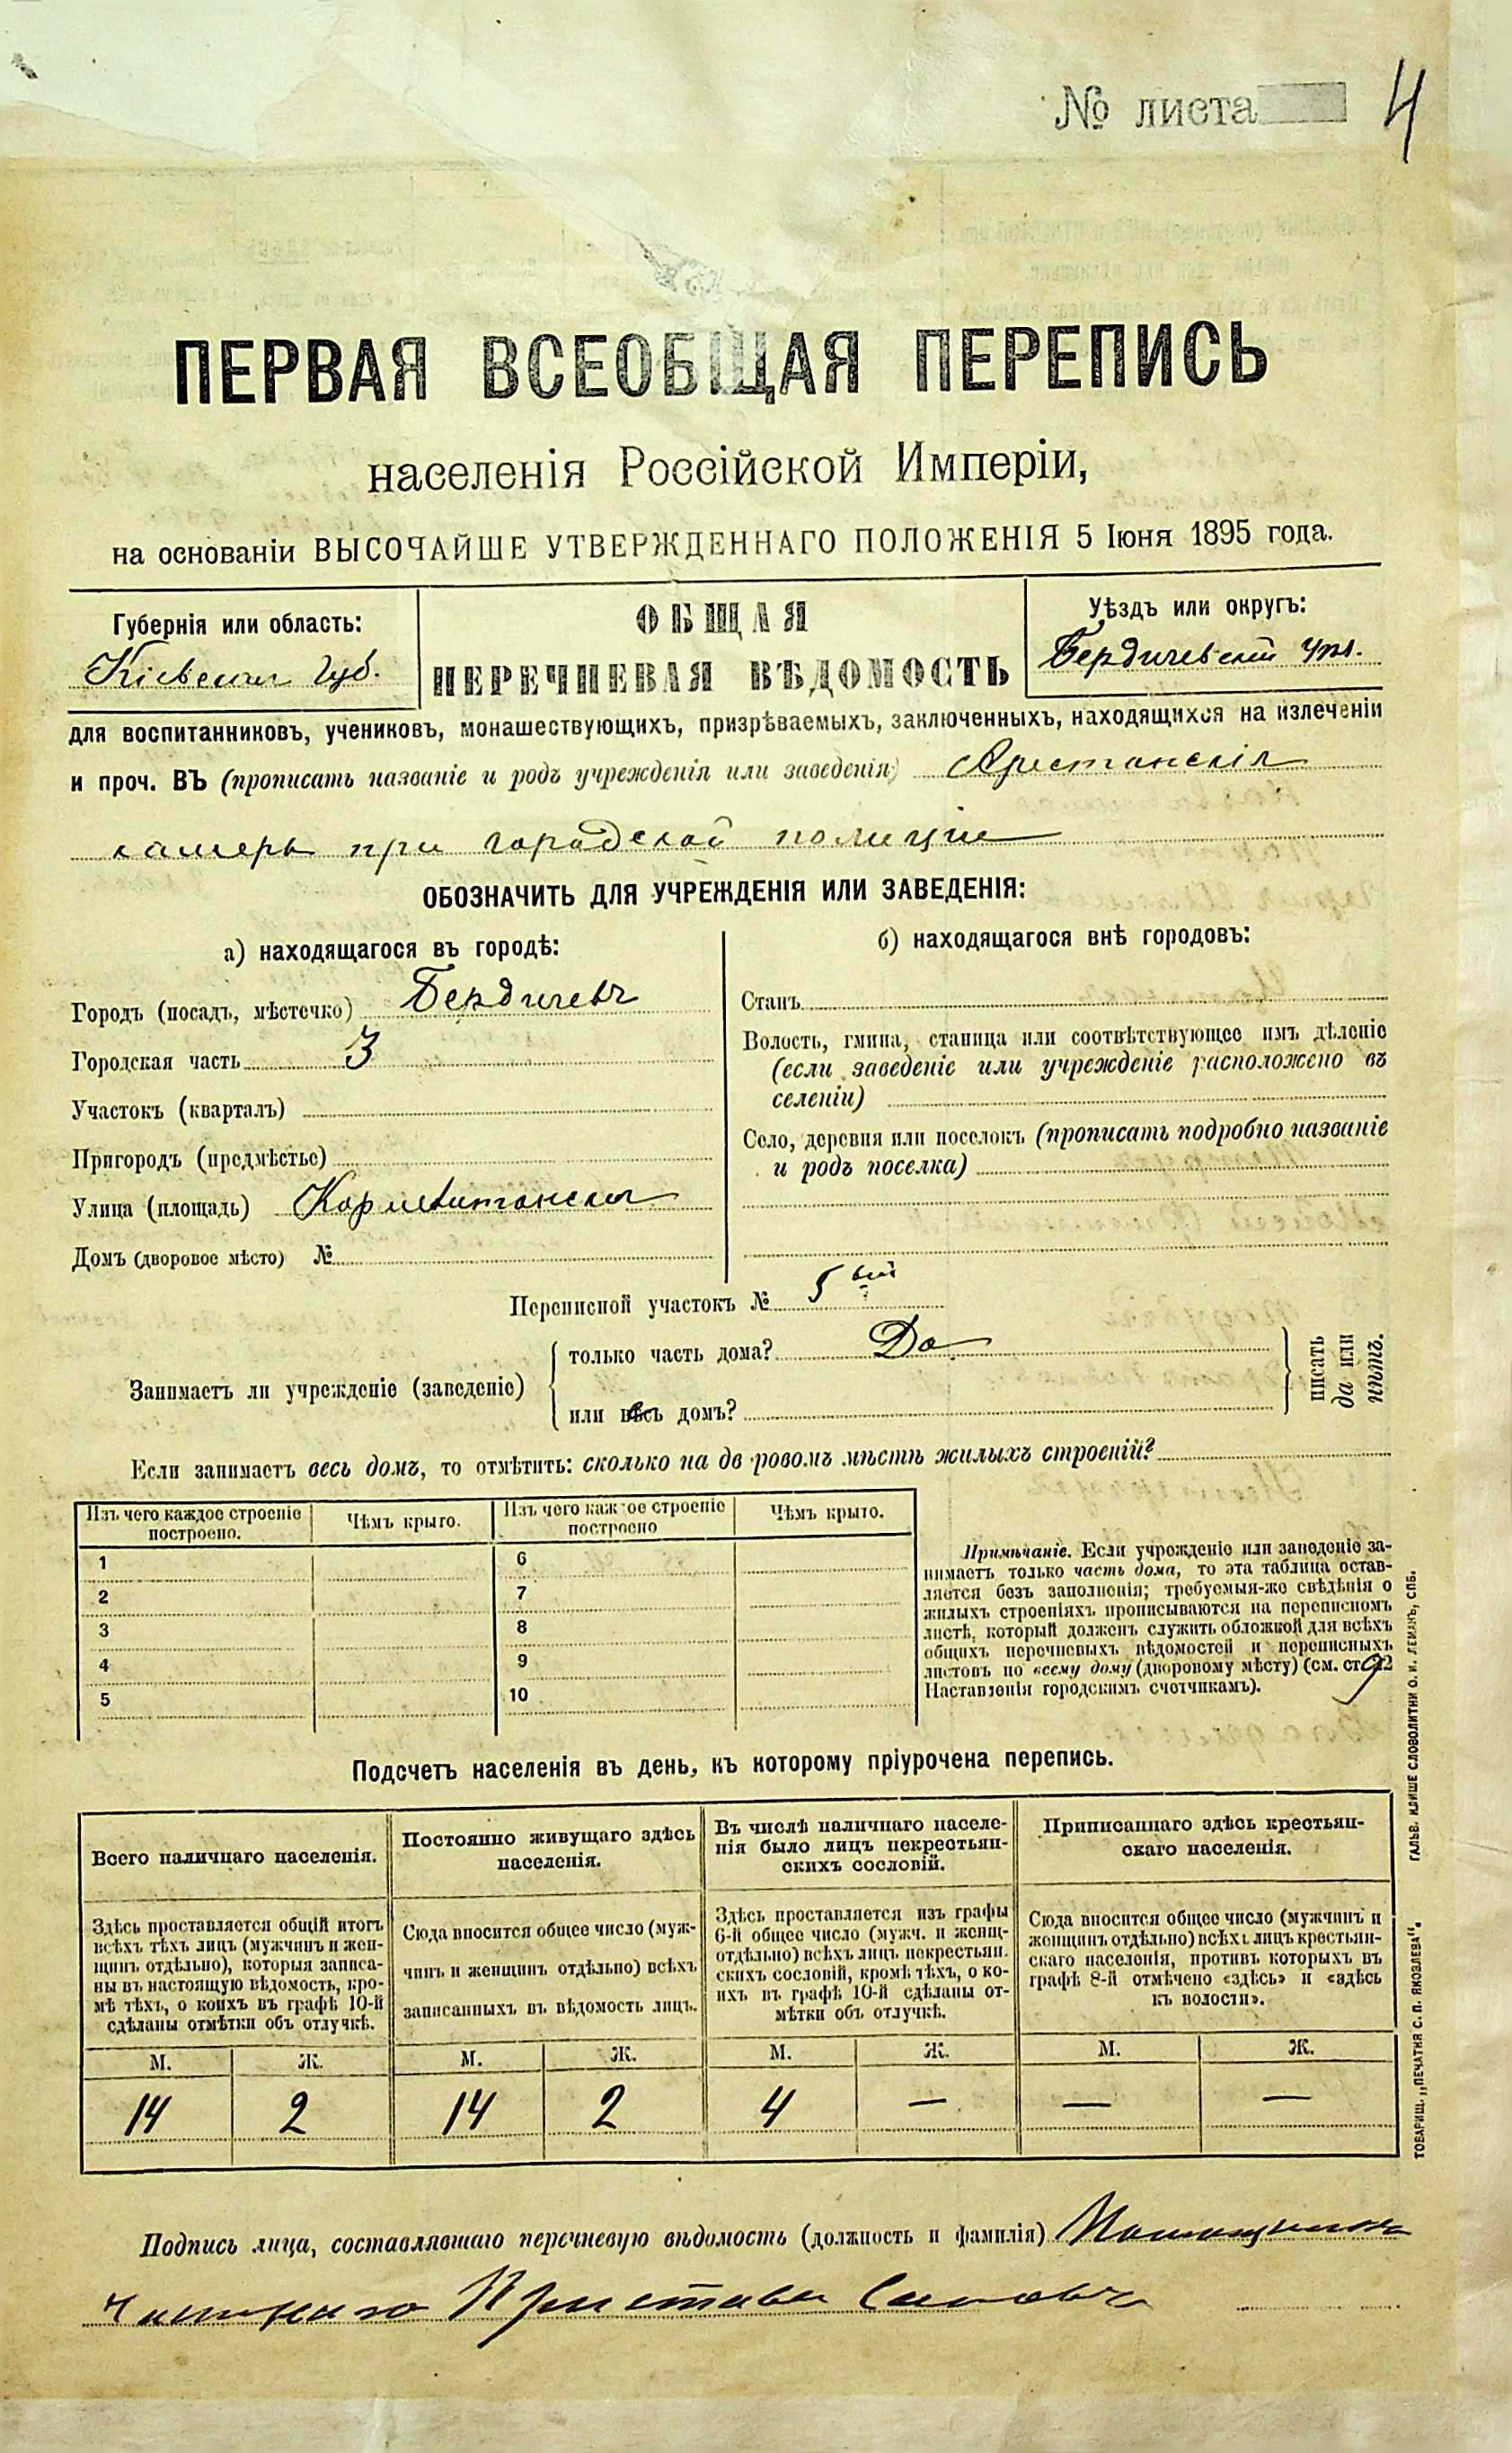 № листа 4
ПЕРВАЯ ВСЕОБЩАЯ ПЕРЕПИСЬ
населенія Россійской Имперіи,
на основаніи ВЫСОЧАЙШЕ УТВЕРЖДЕННАГО ПОЛОЖЕНІЯ 5 Іюня 1895 года.
Губернія или область:
Кіевская Губ.
ОБЩАЯ
ПЕРЕЧНЕВАЯ ВѢДОМОСТЬ
Уѣздъ или округъ:
Бердичевскій
для воспитанниковъ, учениковъ, монашествующихъ, призрѣваемыхъ, заключенныхъ, находящихся на излеченіи
и проч. ВЪ (прописать названіе и родъ учрежденія или заведенія) Арестанскія
камеры при городской полиціи
ОБОЗНАЧИТЬ ДЛЯ УЧРЕЖДЕНІЯ ИЛИ ЗАВЕДЕНІЯ:
а) находящагося въ городѣ:
Городъ (посадъ, мѣстечко) Бердичевъ
Городская часть 3
Участокъ (кварталъ)
Пригородъ (предмѣстье)
Улица (площадь) Кармелитанская
Домъ (дворовое мѣсто) №
б) находящагося внѣ городовъ:
Станъ
Волость, гмина, станица или соотвѣтствующее имъ дѣленіе
(если заведеніе или учрежденіе расположено въ
селеніи)
Село, деревня или поселокъ (прописать подробно названіе
и родъ поселка)
Переписной участокъ № 5 ый
Занимаетъ ли учрежденіе (заведеніе)
только часть дома? Да
или весь домъ?
писать
да или
нѣтъ.
Если занимаетъ весь домъ, то отмѣтить: сколько на дв ровомъ мѣстѣ жилыхъ строеній?
Изъ чего каждое строеніе построено.
Чѣмъ крыто.
Изъ чего каж ое строеніе построено
Чѣмъ крыто.
1 6
2 7
3 8
4 9
5 10
Примѣчаніе. Если учрежденіе или заведеніе за-
нимаетъ только часть дома, то эта таблица остав-
ляется безъ заполненія; требуемыя-же свѣдѣнія о
жилыхъ строеніяхъ прописываются на переписномъ
листѣ, который долженъ служить обложкой для всѣхъ
общихъ перечневыхъ вѣдомостей и переписныхъ
листовъ по всему дому (дворовому мѣсту) (см. ст. 22
Наставленія городскимъ счетчикамъ).
Подсчетъ населенія въ день, къ которому пріурочена перепись.
Всего наличнаго населенія.
Здѣсь проставляется общій итогъ
всѣхъ тѣхъ лицъ (мужчинъ и жен-
щинъ отдѣльно), которыя записа-
ны въ настоящую вѣдомость, кро-
мѣ тѣхъ, о коихъ въ графѣ 10-й
сдѣланы отмѣтки объ отлучкѣ.
М. Ж.
14 2
Постоянно живущаго здѣсь
населенія.
Сюда вносится общее число (муж-
чинъ и женщинъ отдѣльно) всѣхъ
записанныхъ въ вѣдомость лицъ.
М. Ж.
14 2
Въ числѣ наличнаго населе-
нія было лицъ некрестьян-
скихъ сословій.
Здѣсь проставляется изъ графы
6-й общее число (мужч. и женщ.
отдѣльно) всѣхъ лицъ некрестьян.
скихъ сословій, кромѣ тѣхъ, о ко-
ихъ въ графѣ 10-й сдѣланы от-
мѣтки объ отлучкѣ.
М. Ж.
4 —
Приписаннаго здѣсь крестьян-
скаго населенія.
Сюда вносится общее число (мужчинъ и
женщинъ отдѣльно) всѣхъ лицъ крестьян-
скаго населенія, противъ которыхъ въ
графѣ 8-й отмѣчено «здѣсь» и «здѣсь
къ волости».
М. Ж.
— —
Подпись лица, составлявшаго перечневую вѣдомость (должность и фамилія) Помощникъ
Частнаго Пристава
ТОВАРИЩ. „ПЕЧАТНЯ С. П. ЯКОВЛЕВА“. ГАЛЬВ. КЛИШЕ СЛОВОЛИТНИ О. И. ЛЕМАНЪ, СПБ.